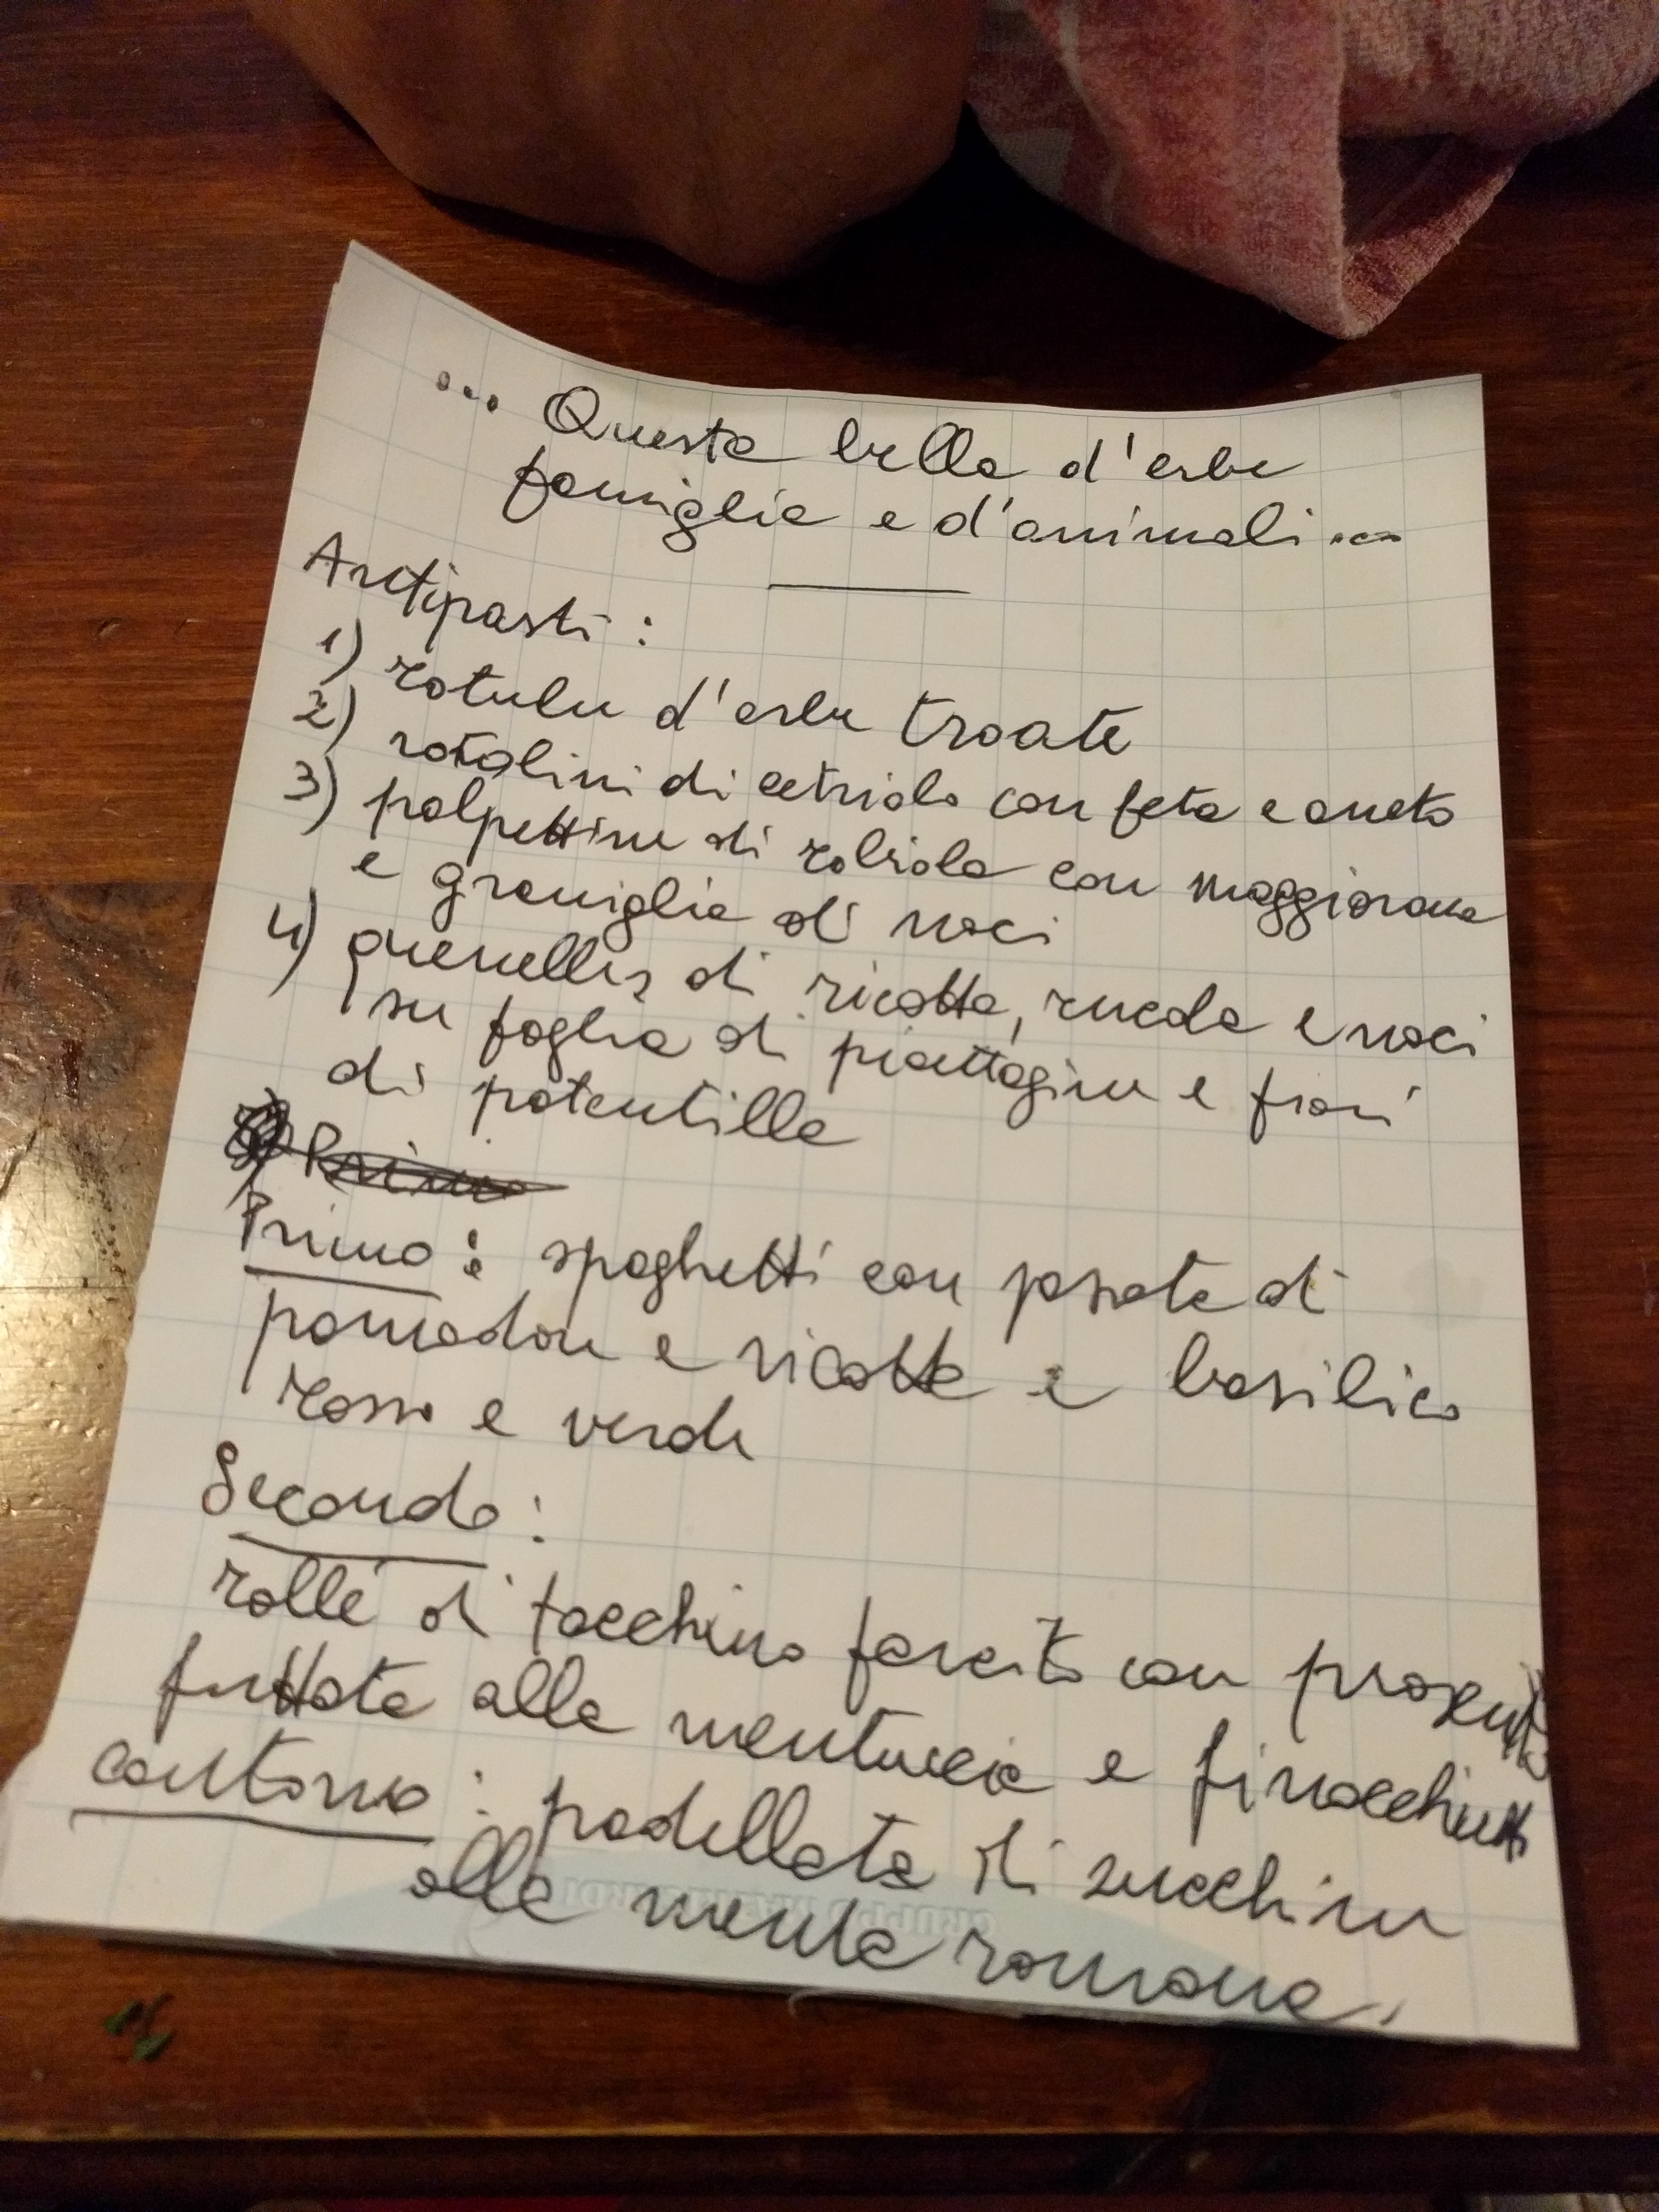 ... Questa bella d'erbe
famiglia e d'animali...
Antipasti:
1) rotule d'erbe troate
2) rotolini di cetriolo con feta e aneto
3) polpettine di robiola con maggiorana
e graniglia di noci
4) quenelles di ricotta, rucola e noci
su foglia di piattagine e fiori
di potentilla
Primo
Primo: spaghetti con passata di
pomodori e ricotta e basilico
rosso e verde
Secondo:
rollé di tacchino farcito con prosciutto
frittata alla mentuccia e finocchietto
contorno: padellata di zucchine
alla menta romana.